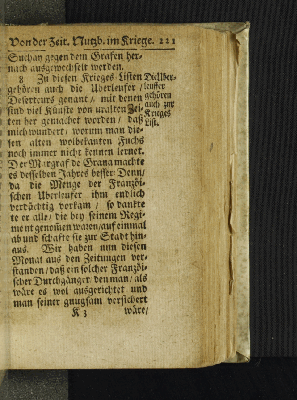 Von der Zeit. Nutzb. im Kriege. 221
Suchan gegen dem Grafen her-
nach ausgewechselt werden.
8 Zu diesen Krieges Listen
gehören auch die Uberleufer /
Deserteurs genant / mit denen
sind viel Künste von uralten Zei-
ten her gemachet worden / daß
mich wundert / worum man die-
sen alten wolbekanten Fuchs
noch immer nicht kennen lernet.
Der Margraf de Grana machte
es desselben Jahres besser Denn /
da die Menge der Französi-
schen Uberleufer ihm endlich
verdächtig vorkam / so danckte
er alle / die bey seinem Regi-
ment genommen waren / auf einmal
ab und schafte sie zur Stadt hin-
aus. Wir haben nun diesen
Monat aus den Zeitungen ver-
standen / daß ein solcher Französi-
scher Durchgänger den man / als
wäre es wol ausgerichtet und
man seiner gnugsam versichert
K 3 wäre /
Die Uber-
leuffer
gehören
auch zur
Krieges
List.